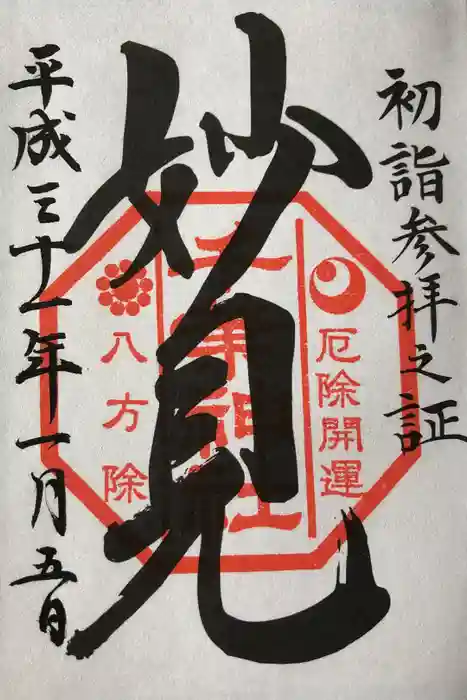 初詣参拝之証
妙見
厄除開運
千葉神社
八方除
平成三十一年一月五日